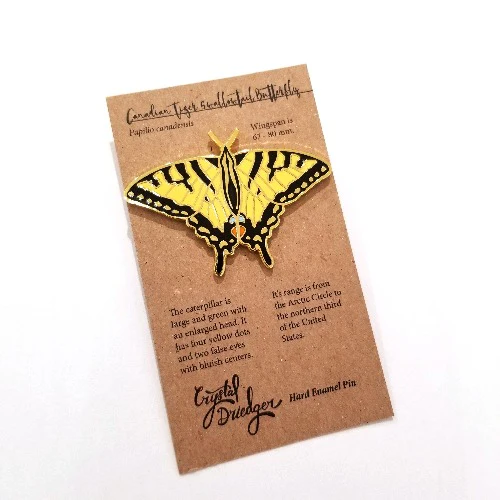 Canadian Tiger Swallowtail Butterfly
Papilio canadensis
Wingspan is
67 - 80 mm.
The caterpillar is
large and green with
an enlarged head. It
has four yellow dots
and two false eyes
with bluish centers.
It's range is from
the Arctic Circle to
the northern third
of the United
States.
Crystal
Driedger
Hard Enamel Pin